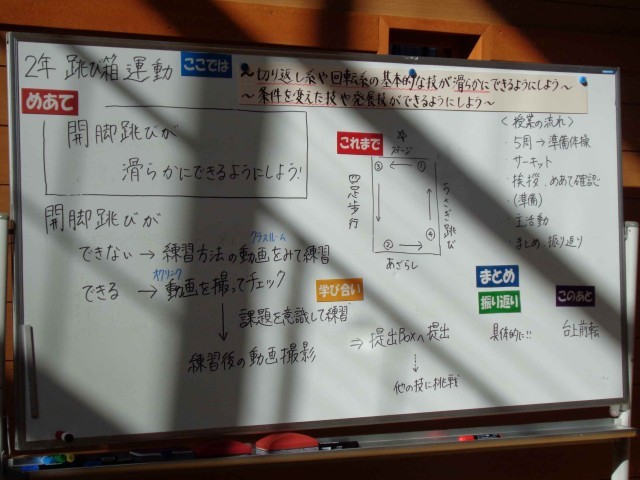 2年 跳び箱運動 ここでは
～切り返し系や回転系の基本的な技が滑らかにできるようにしよう～
～条件を変えた技や発展技ができるようにしよう～
めあて
開脚跳びが
滑らかにできるようにしよう!
開脚跳びが
クラスルーム
できない → 練習方法の動画をみて練習
できる → 動画を撮ってチェック
↓ 課題を意識して練習
練習後の動画撮影
これまで
ステージ
③ ← ①
四足歩行
うさぎ跳び
② → ④
あざらし
<授業の流れ>
・5周 → 準備体操
・サーキット
・挨拶、めあて確認
・(準備)
・主活動
・まとめ、振り返り
学び合い
⇒ 提出Boxへ提出
他の技に挑戦
まとめ
振り返り
具体的に!!
このあと
台上前転